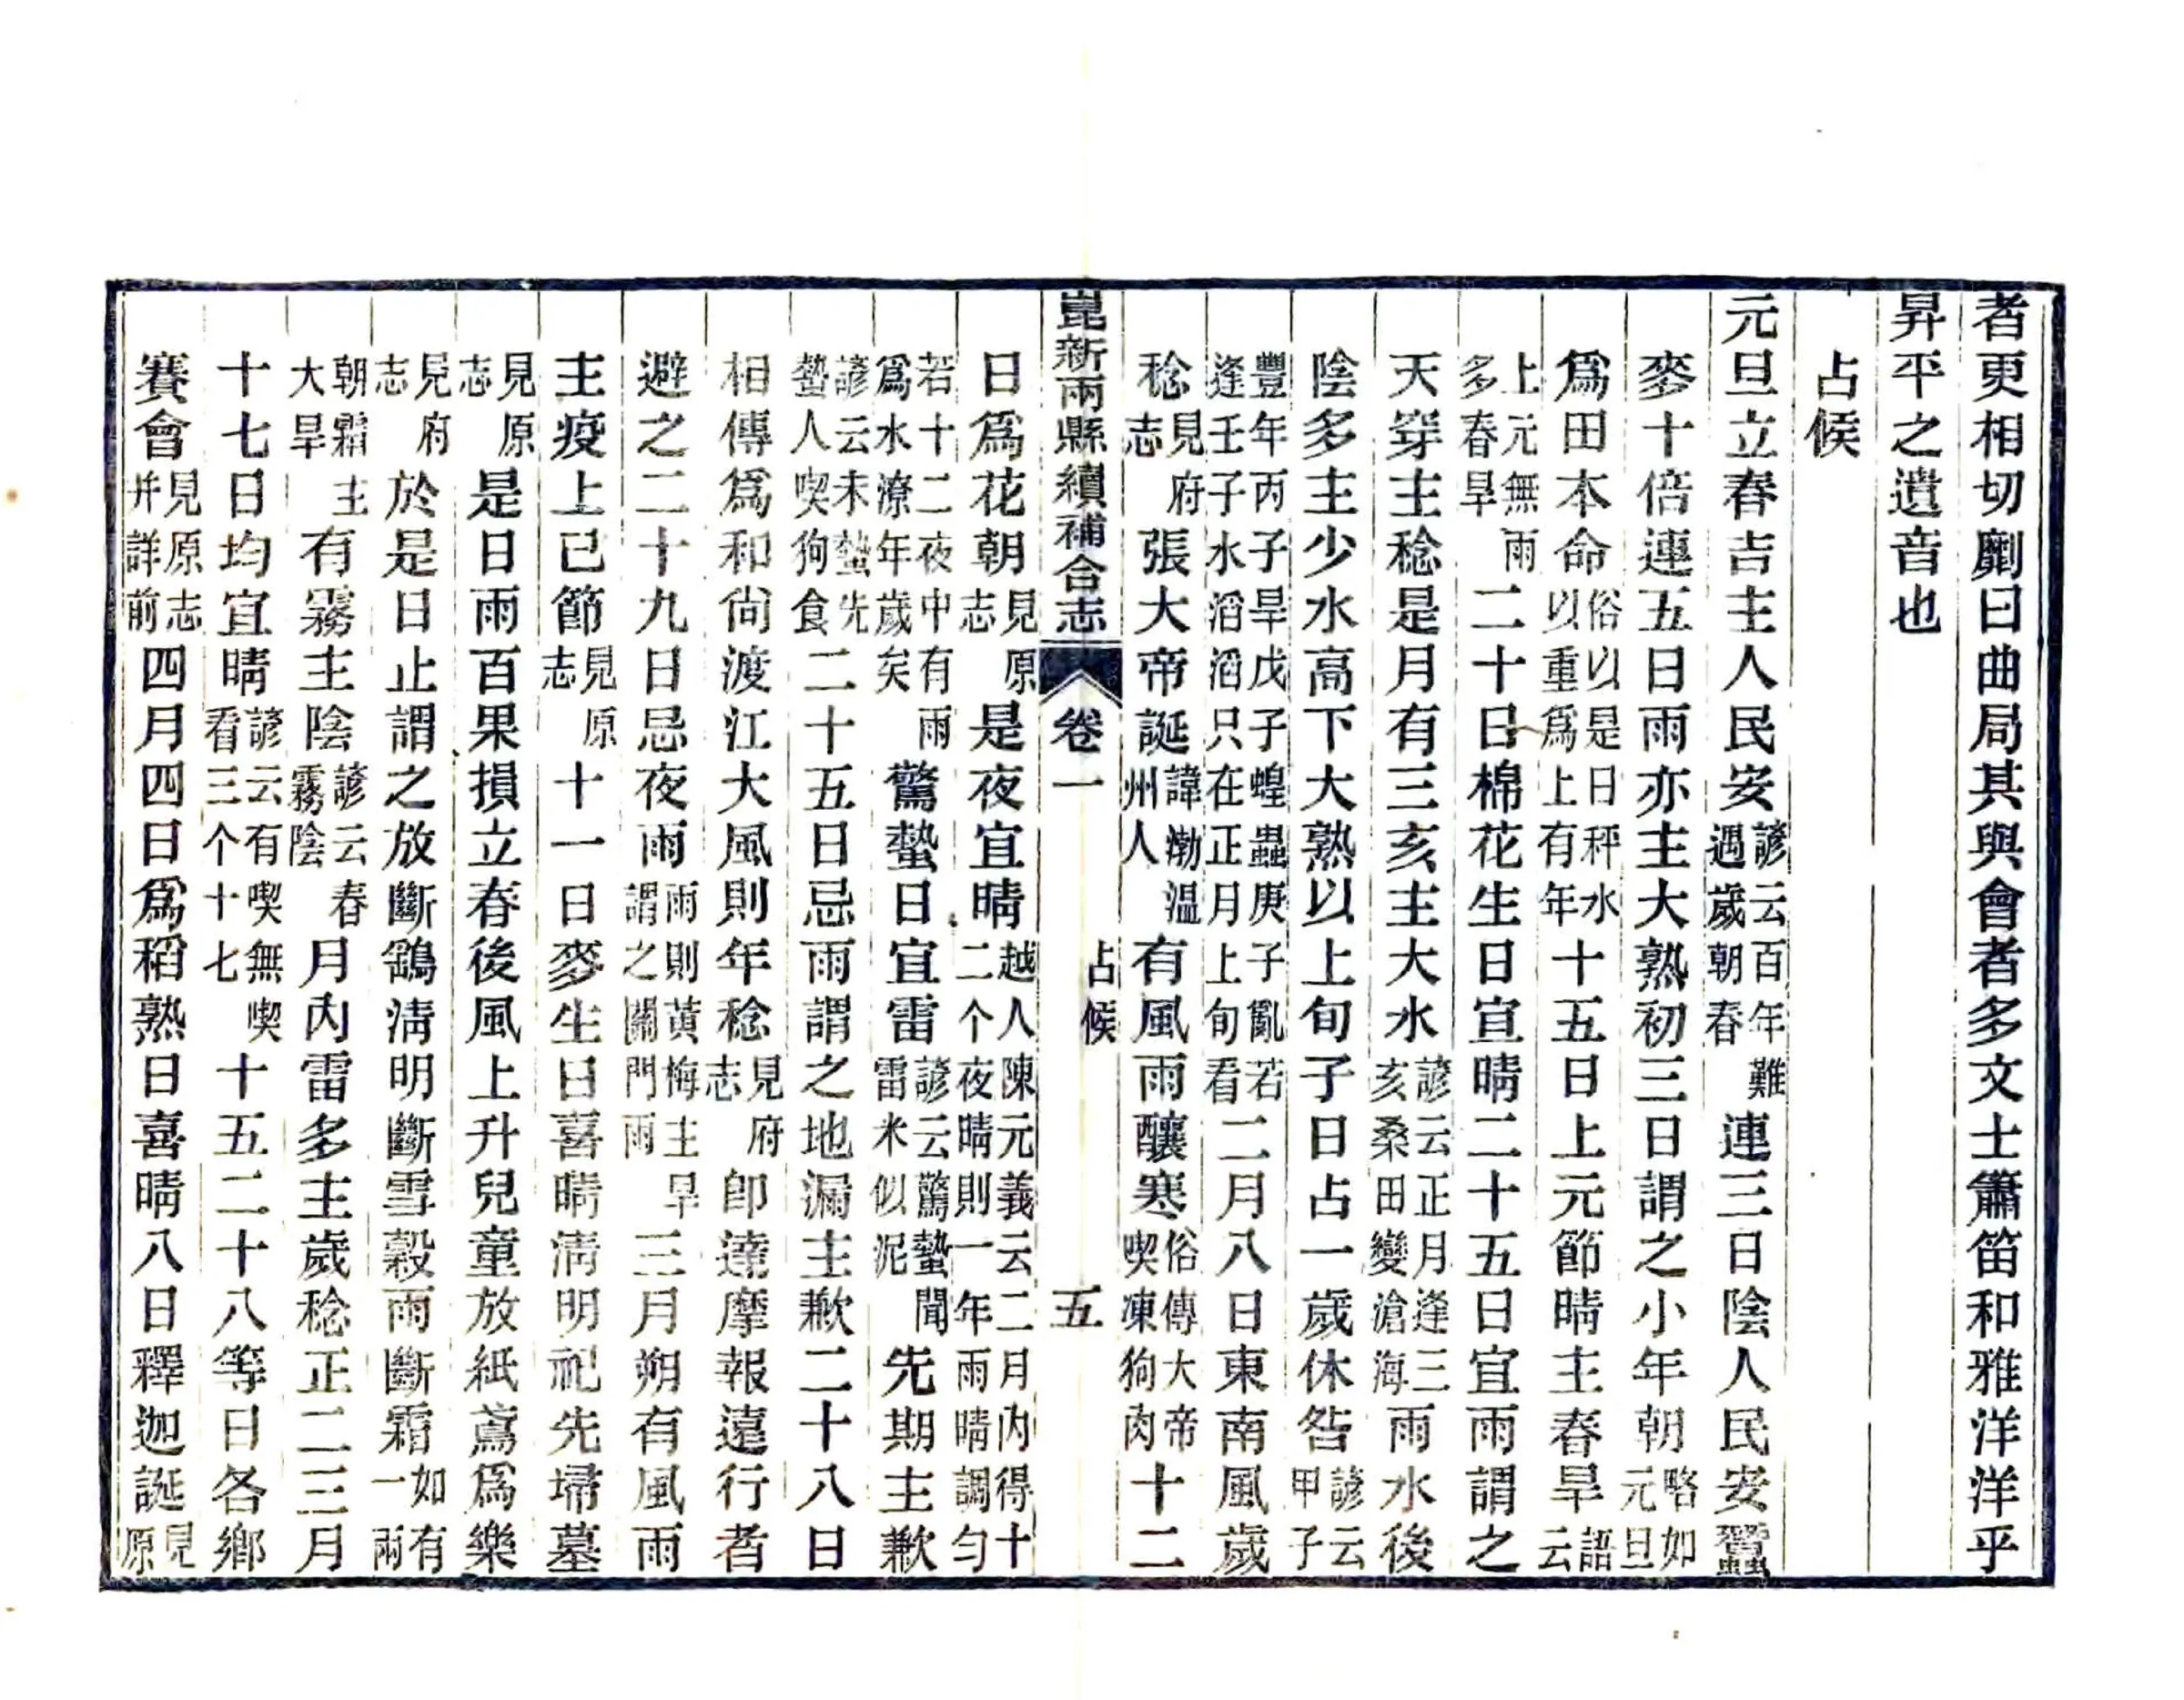 者更相切劘曰曲局其與會者多文士簫笛和雅洋洋乎
昇平之遺音也
占候
元旦立春吉主人民安諺云百年難遇歲朝春連三日陰人民安蠶
麥十倍連五日雨亦主大熟初三日謂之小年朝略如元旦
爲田本命俗以是日秤水以重爲上有年十五日上元節晴主春旱語云
上元無雨多春旱二十日棉花生日宜晴二十五日宜雨謂之
天穿主稔是月有三亥主大水諺云正月逢三亥桑田變滄海雨水後
陰多主少水高下大熟以上旬子日占一歲休咎諺云甲子
豐年丙子旱戊子蝗蟲庚子亂若逢壬子水滔滔只在正月上旬看二月八日東南風歲
稔見府志張大帝誕諱渤溫州人有風雨釀寒俗傳大帝喫凍狗肉十二
崑新兩縣續補合志 卷一 占候 五
日爲花朝見原志是夜宜晴越人陳元義云二月內得十二个夜晴則一年雨晴調勻
若十二夜中有雨爲水潦年歲矣驚蟄日宜雷諺云驚蟄聞雷米似泥先期主歉
諺云未蟄先蟄人喫狗食二十五日忌雨謂之地漏主歉二十八日
相傳爲和尙渡江大風則年稔見府志卽達摩報遠行者
避之二十九日忌夜雨雨則黃梅主旱謂之關門雨三月朔有風雨
主疫上巳節見原志十一日麥生日喜晴清明祀先埽墓
見原志是日雨百果損立春後風上升兒童放紙鳶爲樂
見府志於是日止謂之放斷鷂清明斷雪穀雨斷霜如有一兩
朝霜主大旱有霧主陰諺云春霧陰月內雷多主歲稔正二三月
十七日均宜晴諺云有喫無喫看三个十七十五二十八等日各鄉
賽會見原志并詳前四月四日爲稻熟日喜晴八日釋迦誕見原